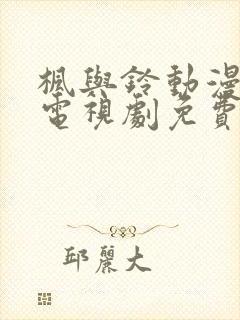 楓與鈴動漫
電視劇免費
邱麗大